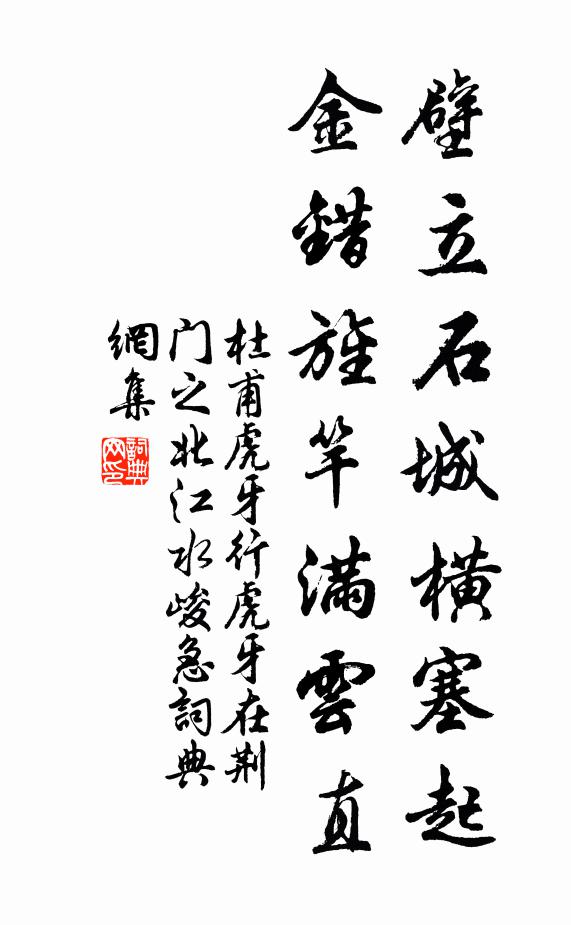 壁立石城橫塞起
金錯旌竿滿雲直
杜甫虎牙行虎牙在荆
门之北江水峻急詞典
網集
詞典
网印